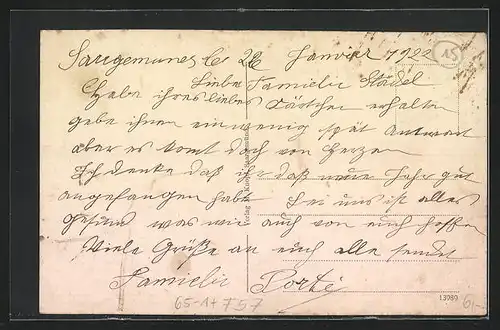 Saargemünd les 22 Janvier 1922
Liebe Familie Städel
Habe ihres liebes Kärtchen erhalten
gebe ihnen ein wenig spät Antwort
aber es komt doch von Herzen
Ich denke daß ihr daß neue Jahr gut
angefangen habt Bei uns ist alles
gesund was wir auch von euch hoffen
Viele Grüße an euch alle sendet
Familie Porté
Verlag
13989
65-1+757
15
61-